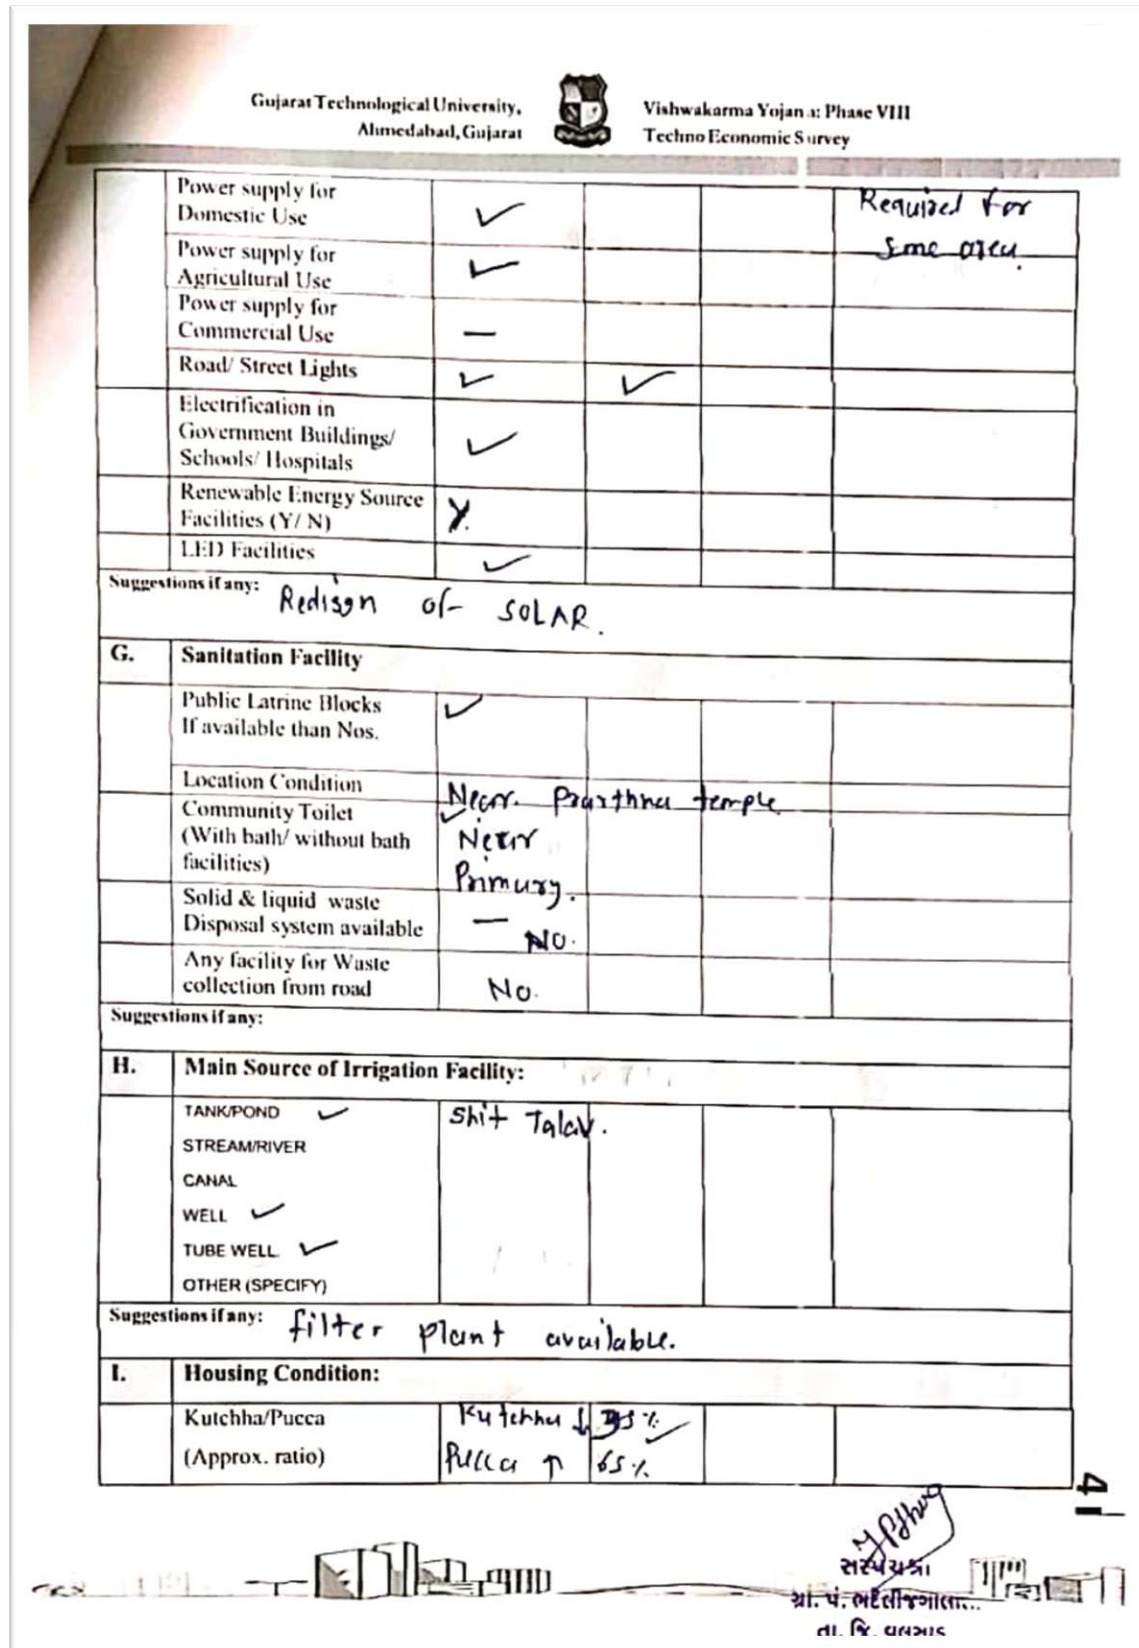 Gujarat Technological University,
Ahmedabad, Gujarat
Vishwakarma Yojana: Phase VIII
Techno Economic Survey
Power supply for
Domestic Use ✓
Required for
some area.
Power supply for
Agricultural Use ✓
Power supply for
Commercial Use —
Road/ Street Lights ✓ ✓
Electrification in
Government Buildings/
Schools/ Hospitals ✓
Renewable Energy Source
Facilities (Y/ N) Y.
LED Facilities ✓
Suggestions if any: Redisgn of SOLAR.
G. Sanitation Facility
Public Latrine Blocks ✓
If available than Nos.
Location Condition Near. Prarthna temple
Community Toilet ✓
(With bath/ without bath Near
facilities) Primary.
Solid & liquid waste —
Disposal system available NO.
Any facility for Waste
collection from road No.
Suggestions if any:
H. Main Source of Irrigation Facility:
TANK/POND ✓ Shit Talav.
STREAM/RIVER
CANAL
WELL ✓
TUBE WELL ✓
OTHER (SPECIFY)
Suggestions if any: filter plant available.
I. Housing Condition:
Kutchha/Pucca Kutchha ↓ 35 % ✓
(Approx. ratio) Pucca ↑ 65 %
41
સરપંચશ્રી
ગ્રા. પં.
તા. જિ. વલસાડ